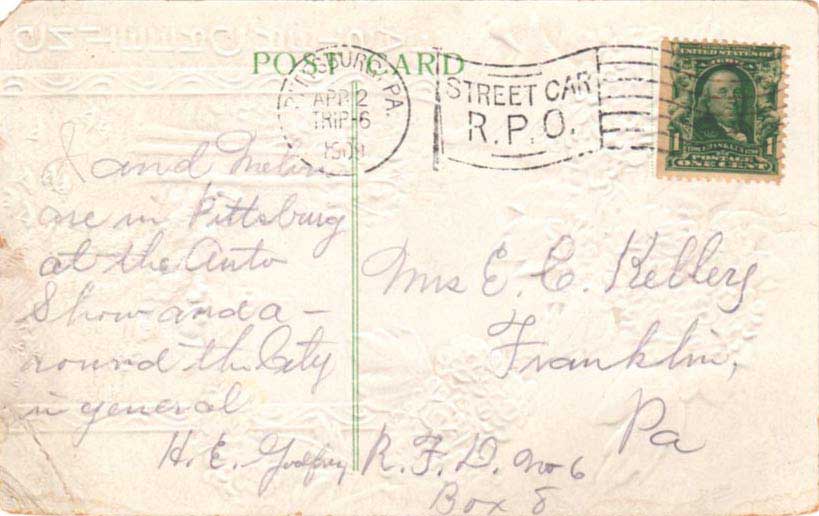 POST CARD
PITTSBURG, PA.
APR 2
TRIP-6
STREET CAR
R.P.O.
UNITED STATES OF
AMERICA
1 1
POSTAGE
ONE CENT
I and Melvin
are in Pittsburg
at the Auto
Show and a-
round the City
in general
H. E. Godfrey
Mrs E. C. Kellery
Franklin,
Pa
R. F. D. No 6
Box 8